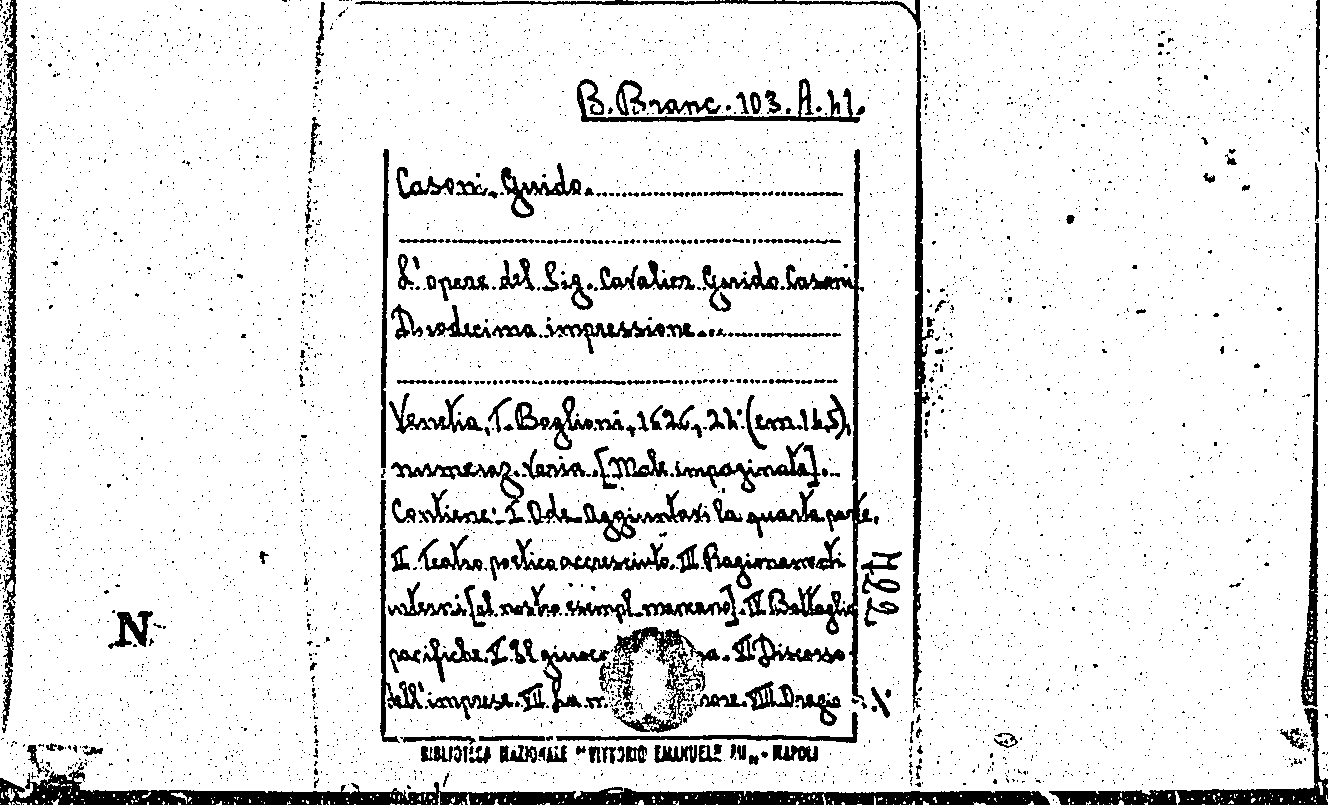 B. Branc. 103. A. 41.
Casoni, Guido.
L'opere del Sig. Cavalier Guido Casoni.
Duodecima impressione...
Venetia, T. Baglioni, 1626, 24° (cm. 14,5),
numeraz. varia. [Male impaginate].
Contiene: I Ode Aggiuntavi la quarta parte.
II Teatro poetico accresciuto. III Ragionamenti
interni [al nostro esempl. mancano]. IV Battaglie
pacifiche. V. Il giuoco a. VI Discorso
dell'imprese. VII La m rose. VIII
422
N
BIBLIOTECA NAZIONALE "VITTORIO EMANUELE III" - NAPOLI